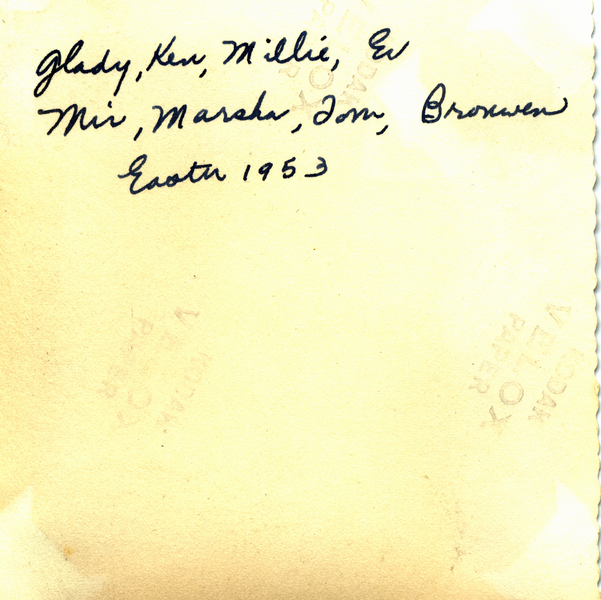 Glady, Ken, Millie, Ev
Mir, Marsha, Tom, Bronwen
Easter 1953
KODAK
VELOX
PAPER
VELOX
PAPER
KODAK
VELOX
PAPER
KODAK